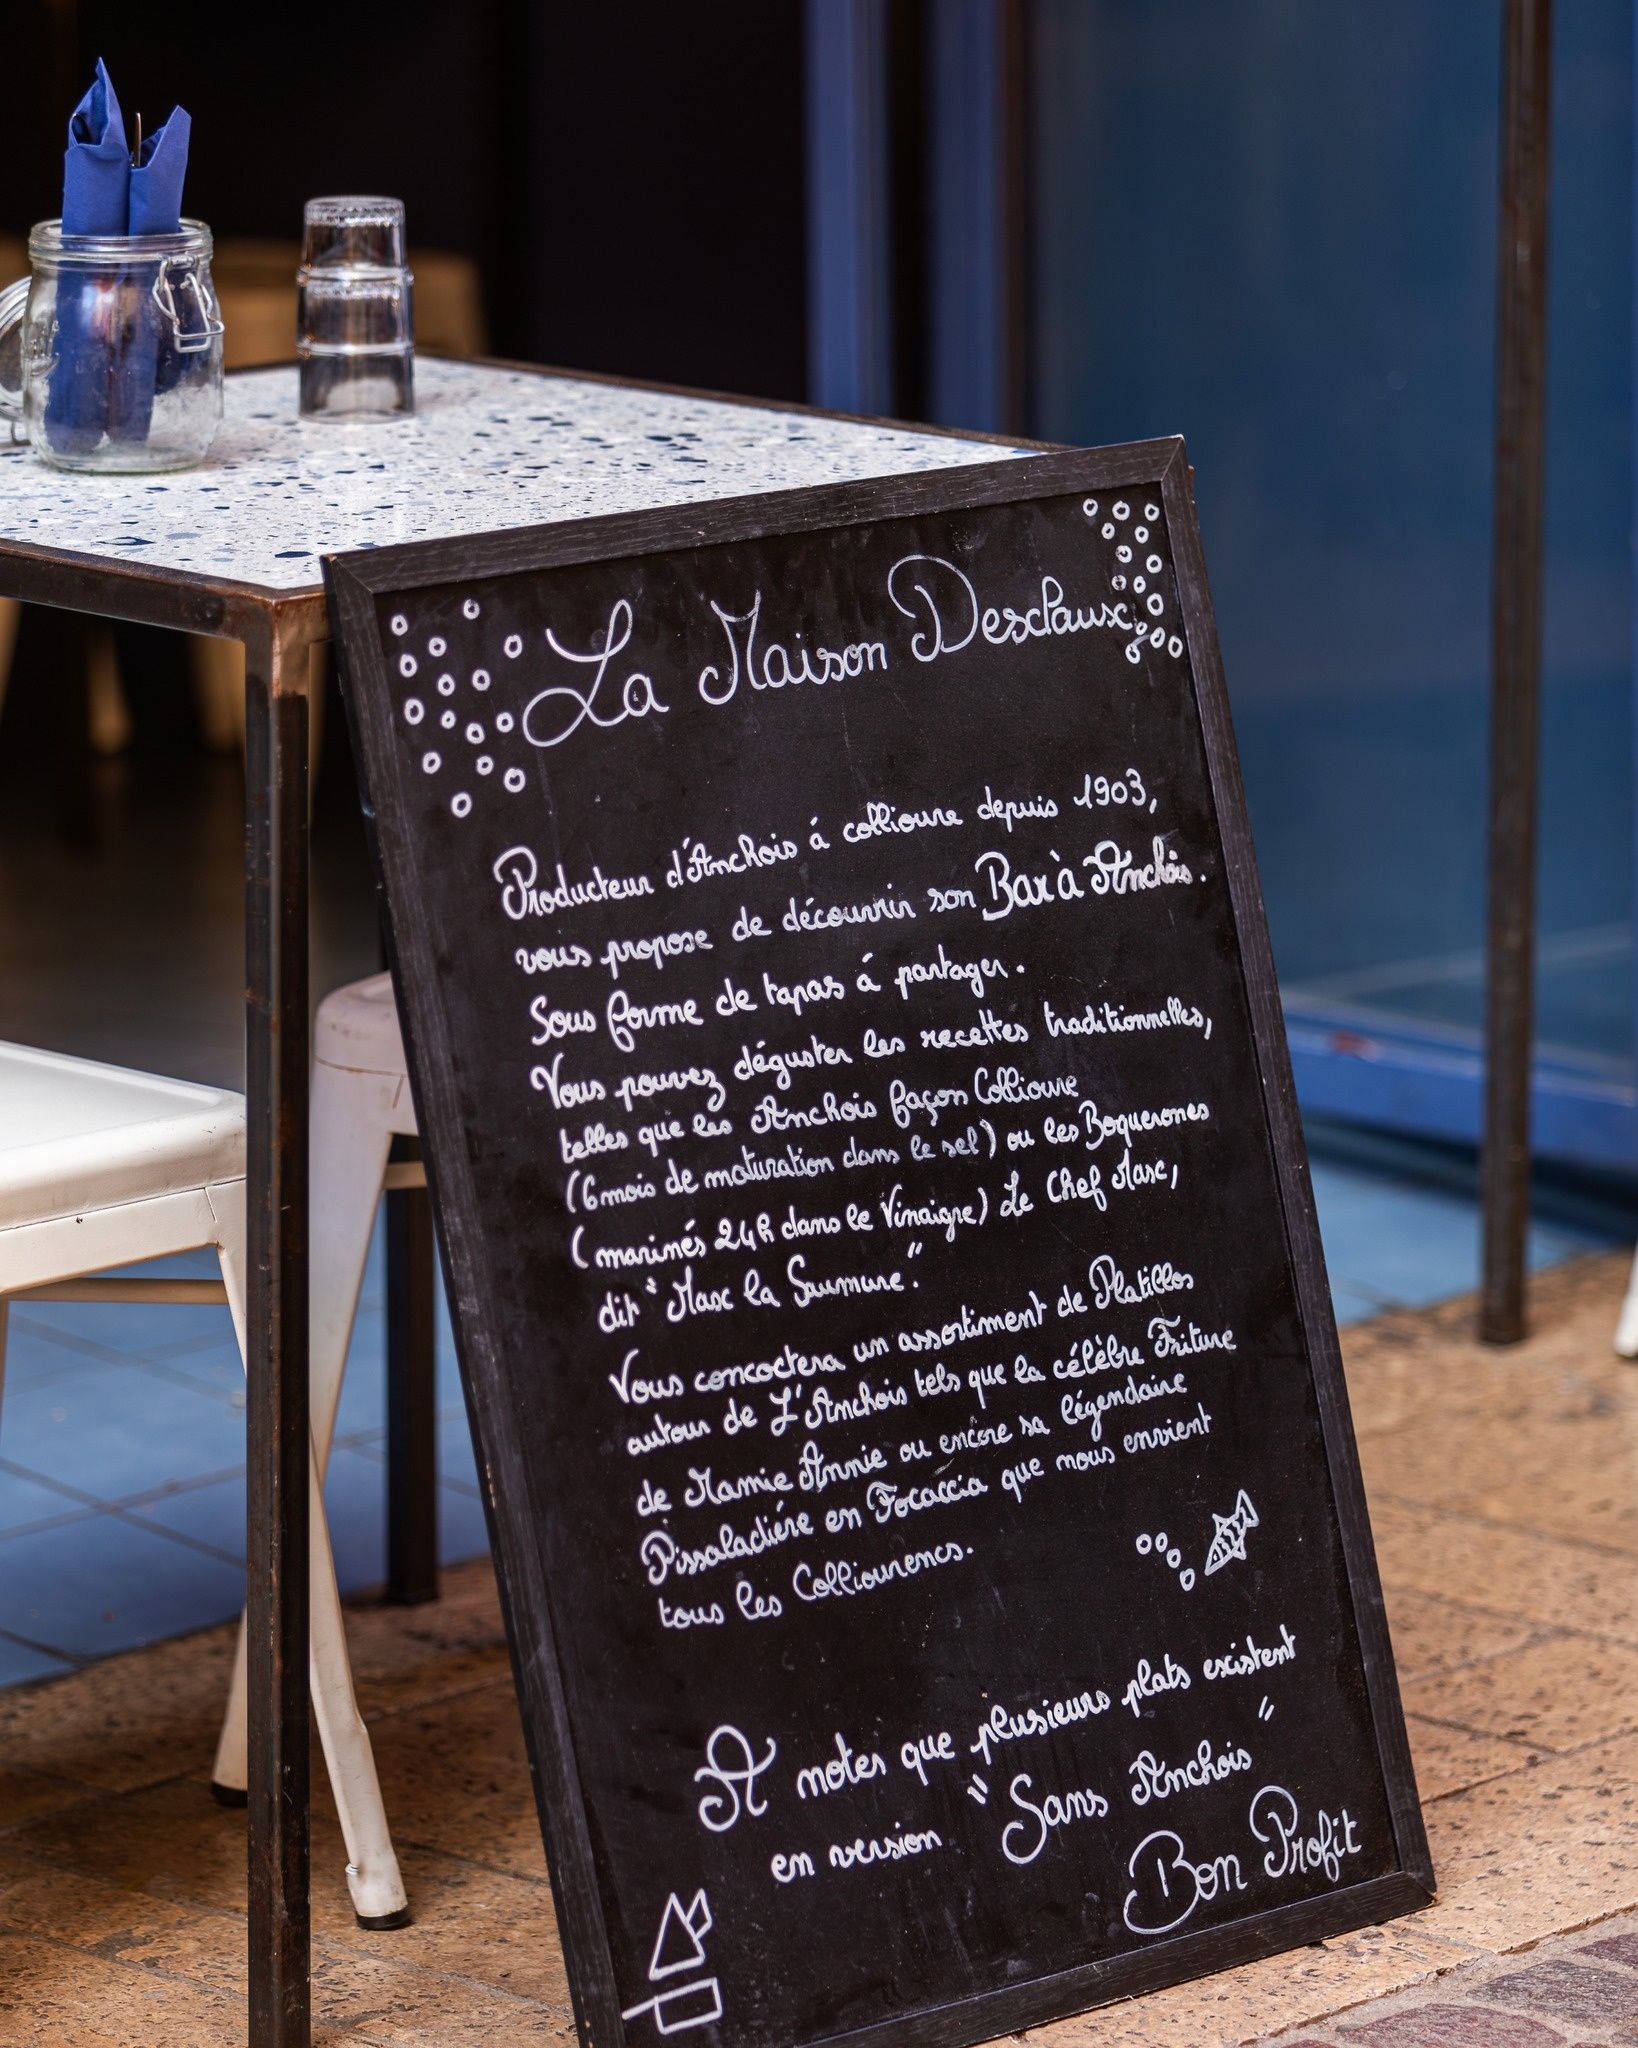 La Maison Desclaux
Producteur d'Anchois á collioure depuis 1903,
vous propose de découvrir son Bar à Anchois.
Sous forme de tapas á partager.
Vous pouvez déguster les recettes traditionnelles,
telles que les Anchois façon Collioure
(6 mois de maturation dans le sel) ou les Boquerones
(marinés 24h dans le Vinaigre) Le Chef Max,
dit "Max la Saumure."
Vous concoctera un assortiment de Platillos
autour de L'Anchois tels que la célèbre Friture
de Mamie Annie ou encore sa légendaire
Pissaladiére en Focaccia que nous envient
tous les Colliourencs.
A notes que plusieurs plats existent
en version "Sans Anchois"
Bon Profit